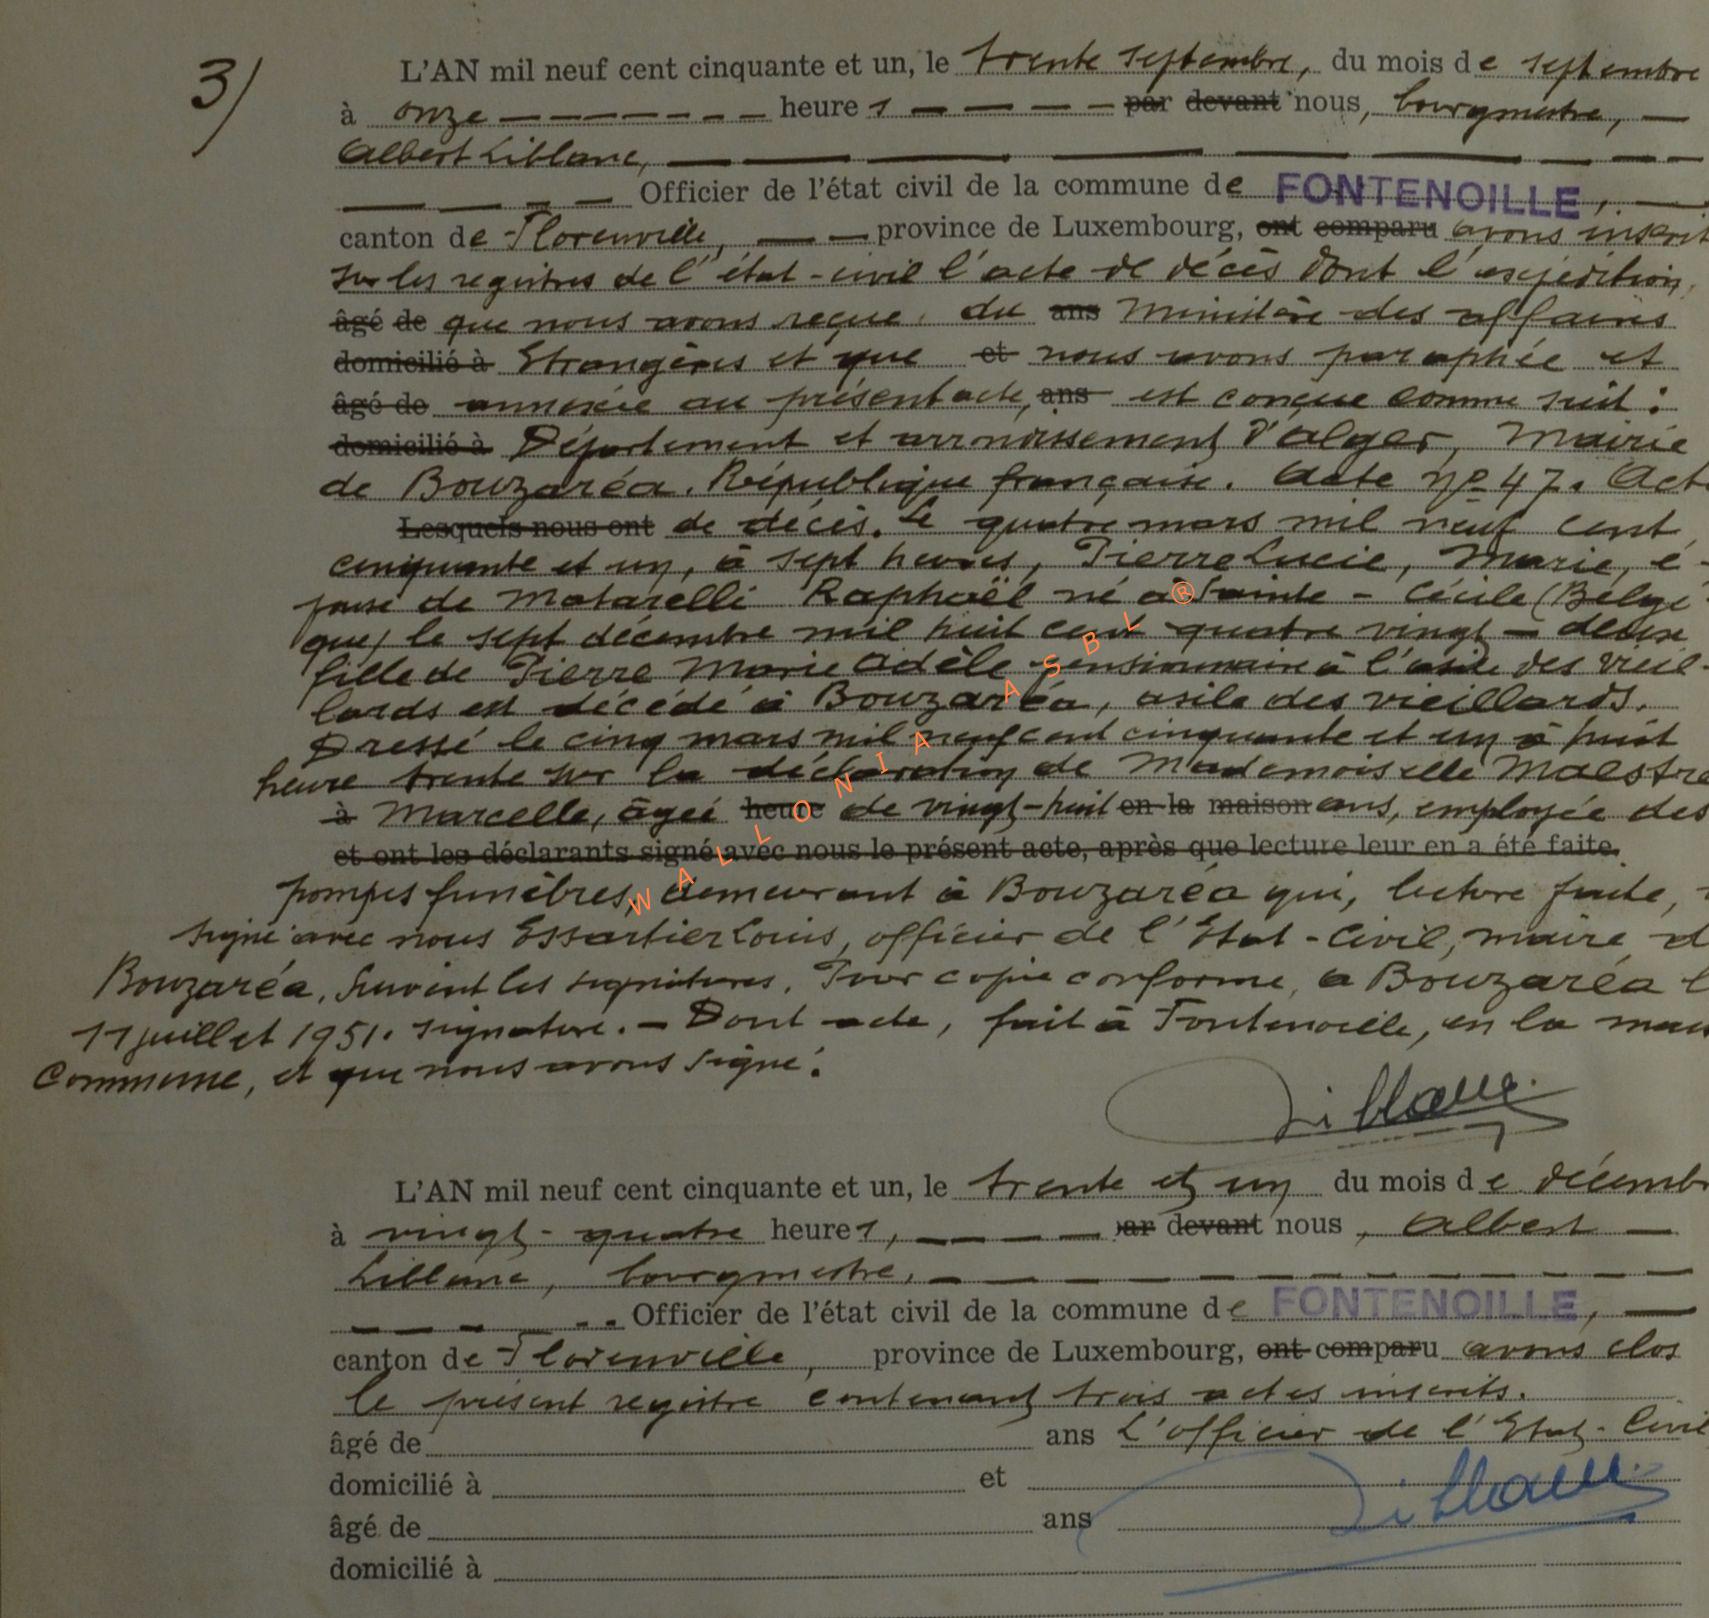 3/
L'AN mil neuf cent cinquante et un, le trente septembre, du mois de septembre
à onze heures par devant nous, bourgmestre,
Albert Liblanc,
Officier de l'état civil de la commune de FONTENOILLE,
canton de Florenville, province de Luxembourg, ont comparu avons inscrit
sur les registres de l'état-civil l'acte de décès dont l'expédition,
âgé de que nous avons reçue du ans Ministère des affaires
domicilié à Etrangères et que et nous avons paraphée et
âgé de annexée au présent acte, ans est conçue comme suit :
domicilié à Département et arrondissement d'Alger, Mairie
de Bouzaréa. République française. Acte no 47. Acte
Lesquels nous ont de décès. Le quatre mars mil neuf cent
cinquante et un, à sept heures, Pierre Lucie, Marie, é-
pouse de Matarelli Raphaël né à Sainte-Cécile (Belgi
que) le sept décembre mil huit cent quatre vingt-deux
fille de Pierre Marie Adèle pensionnaire à l'asile des vieil-
lards est décédé à Bouzaréa, asile des vieillards.
Dressé le cinq mars mil neuf cent cinquante et un à huit
heure trente sur la déclaration de Mademoiselle Maestre
à Marcelle, âgée heure de vingt-huit en la maison ans, employée des
et ont les déclarants signé avec nous le présent acte, après que lecture leur en a été faite.
pompes funèbres, demeurant à Bouzaréa qui, lecture faite,
signé avec nous Essartier Louis, officier de l'Etat-Civil, maire d
Bouzaréa. Suivent les signatures. Pour copie conforme, a Bouzaréa l
11 juillet 1951. signature. - Dont acte, fait à Fontenoille, en la mais
Commune, et que nous avons signé.
Liblanc
L'AN mil neuf cent cinquante et un, le trente et un du mois de décemb
à vingt-quatre heures, par devant nous, Albert
Liblanc, bourgmestre,
Officier de l'état civil de la commune de FONTENOILLE,
canton de Florenville, province de Luxembourg, ont comparu avons clos
le présent registre contenant trois actes inscrits.
âgé de ans L'officier de l'Etat-Civil
domicilié à et
Liblanc
âgé de ans
domicilié à
WALLONIA ASBL ®